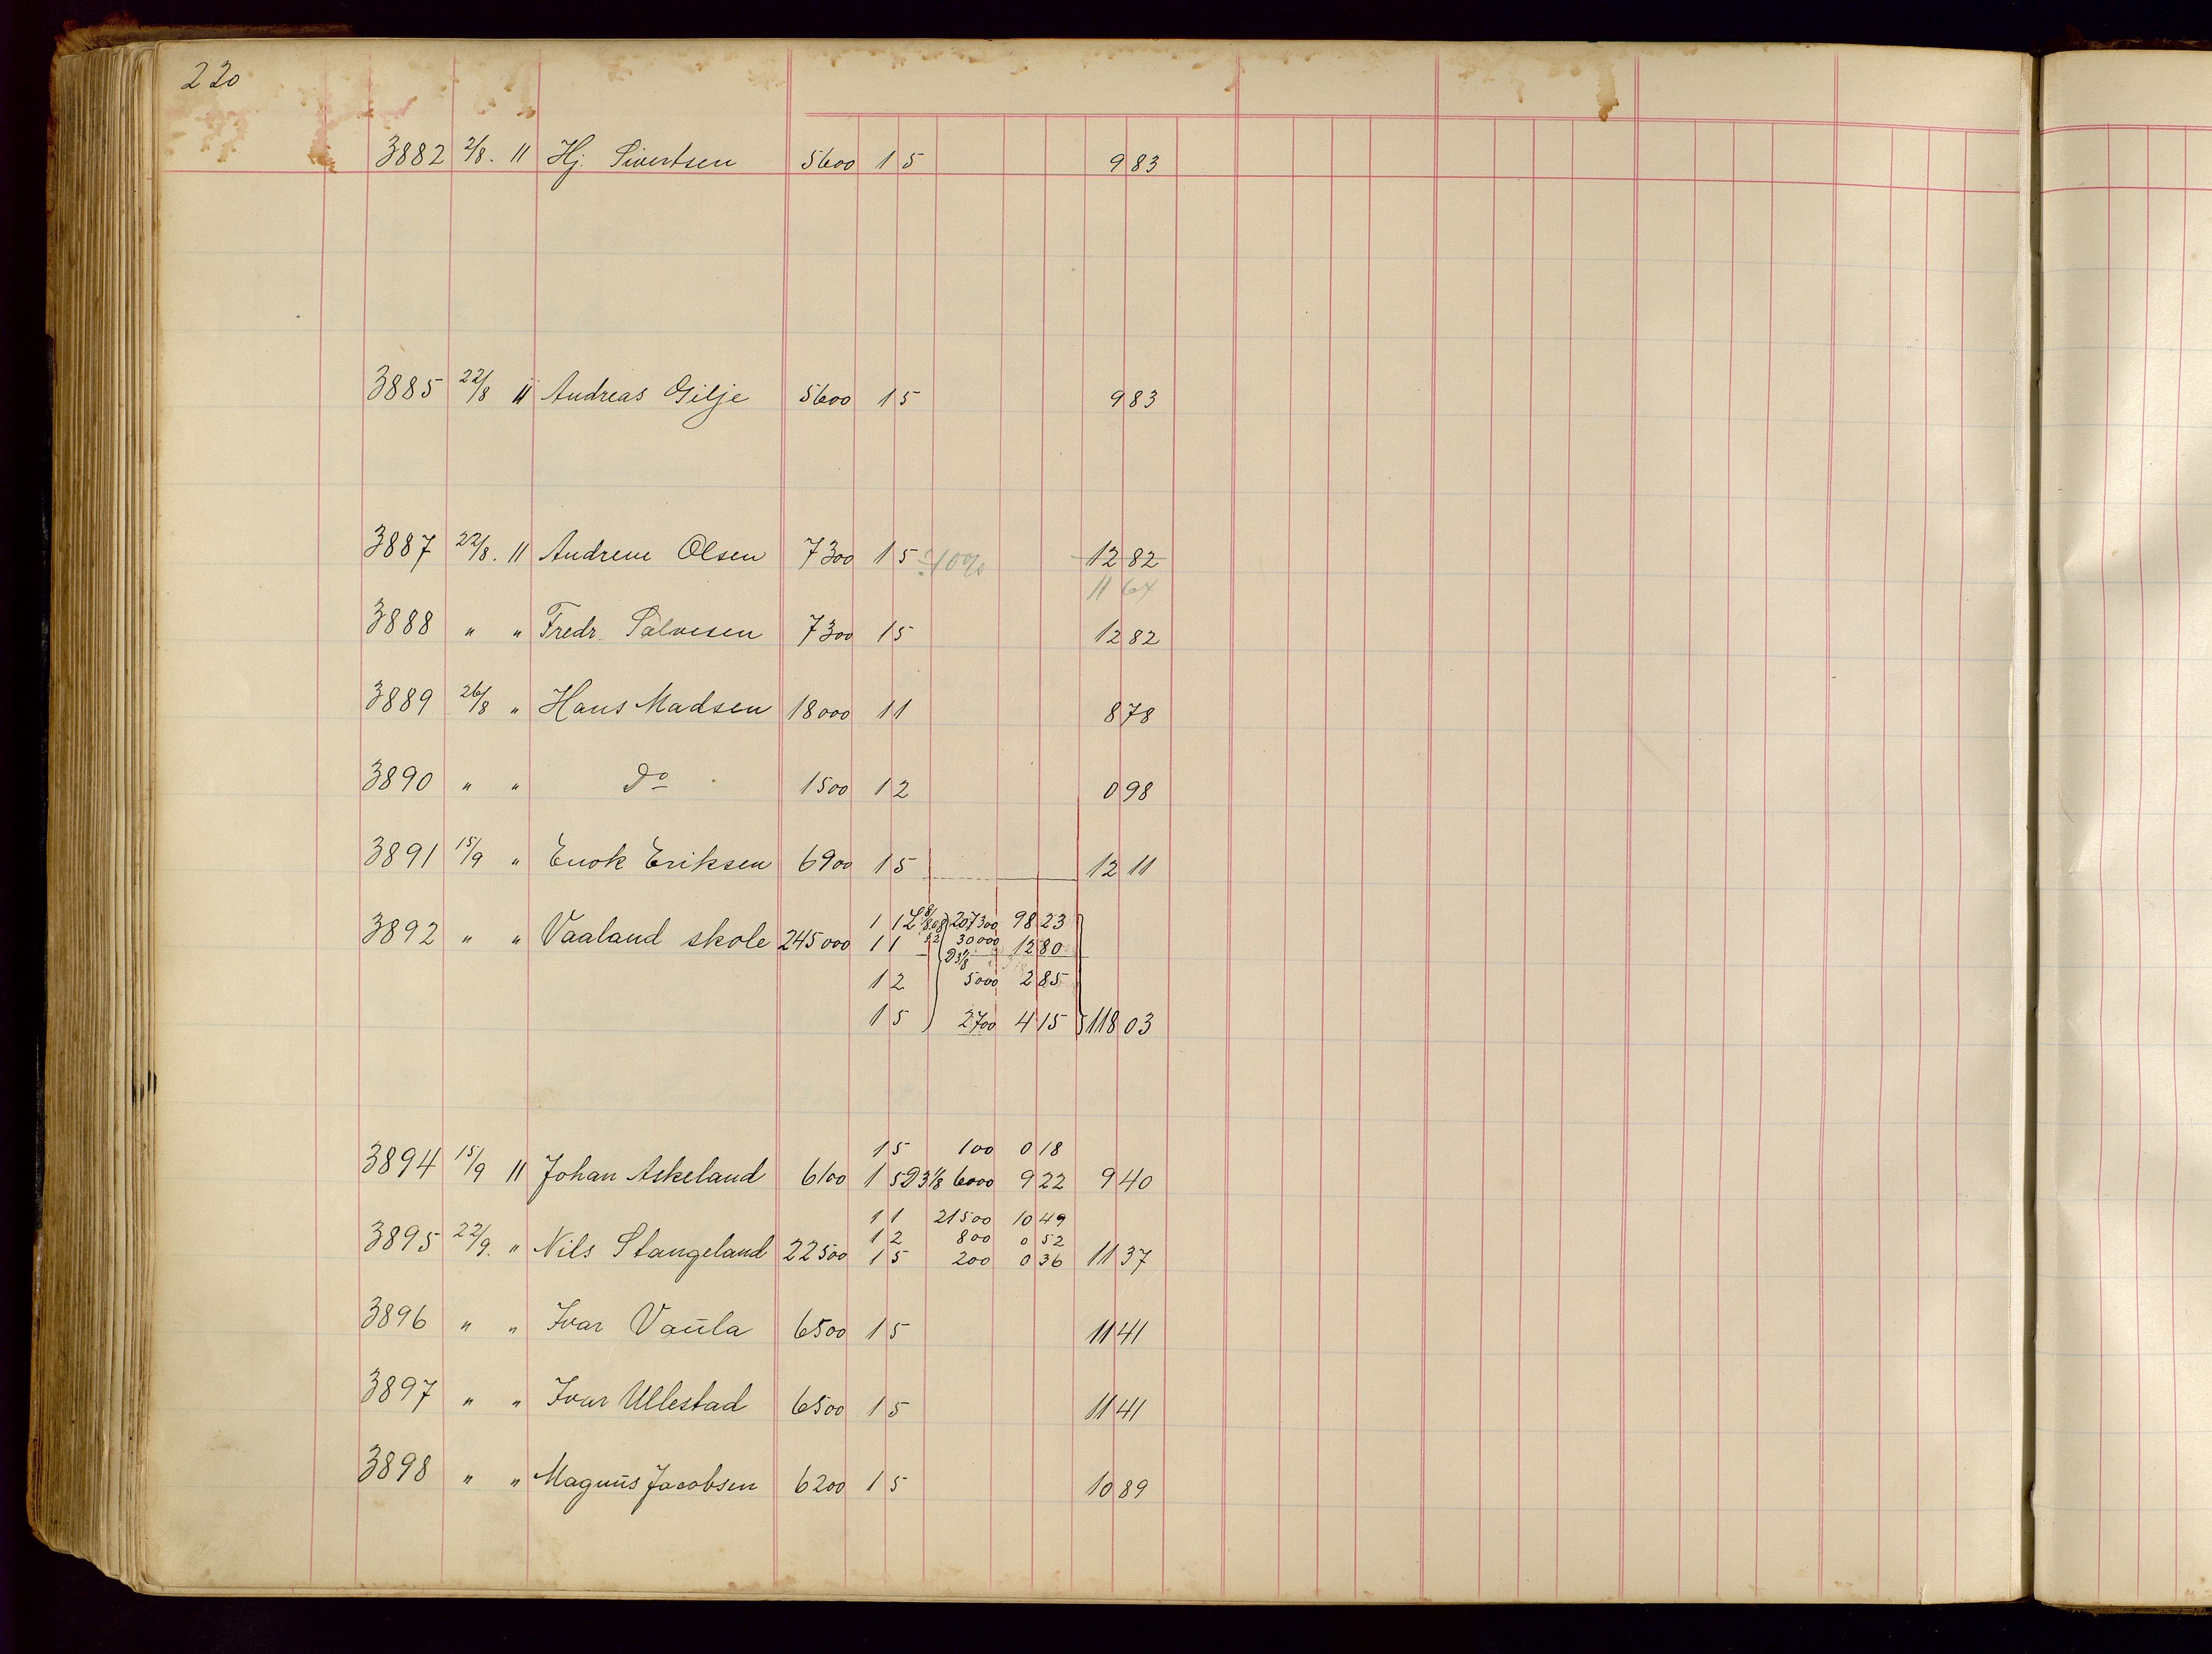 220
3882 2/8. 11 Hj. Sivertsen 5600 1 5 9 83
3885 22/8 11 Andreas Gilje 5600 1 5 9 83
3887 22/8. 11 Andrene Olsen 7300 1 5 ÷10% 12 82
11 64
3888 " " Fredr. Salvesen 7300 1 5 12 82
3889 26/8 " Hans Madsen 18000 1 1 8 78
3890 " " do 1500 1 2 0 98
3891 15/9 " Enok Eriksen 6900 1 5 12 11
1 1 207300 98 23
3892 " " Vaaland skole 245000 1 1 30000 12 80
D 3 1/8
1 2 5000 2 85
1 5 2700 4 15 118 03
1 5 100 0 18
3894 15/9 11 Johan Askeland 6100 1 5 D 3 1/8 6000 9 22 9 40
1 1 21500 10 49
1 2 800 0 52
3895 22/9. " Nils Stangeland 22500 1 5 200 0 36 11 37
3896 " " Ivar Vaula 6500 1 5 11 41
3897 " " Ivar Ullestad 6500 1 5 11 41
3898 " " Magnus Jacobsen 6200 1 5 10 89